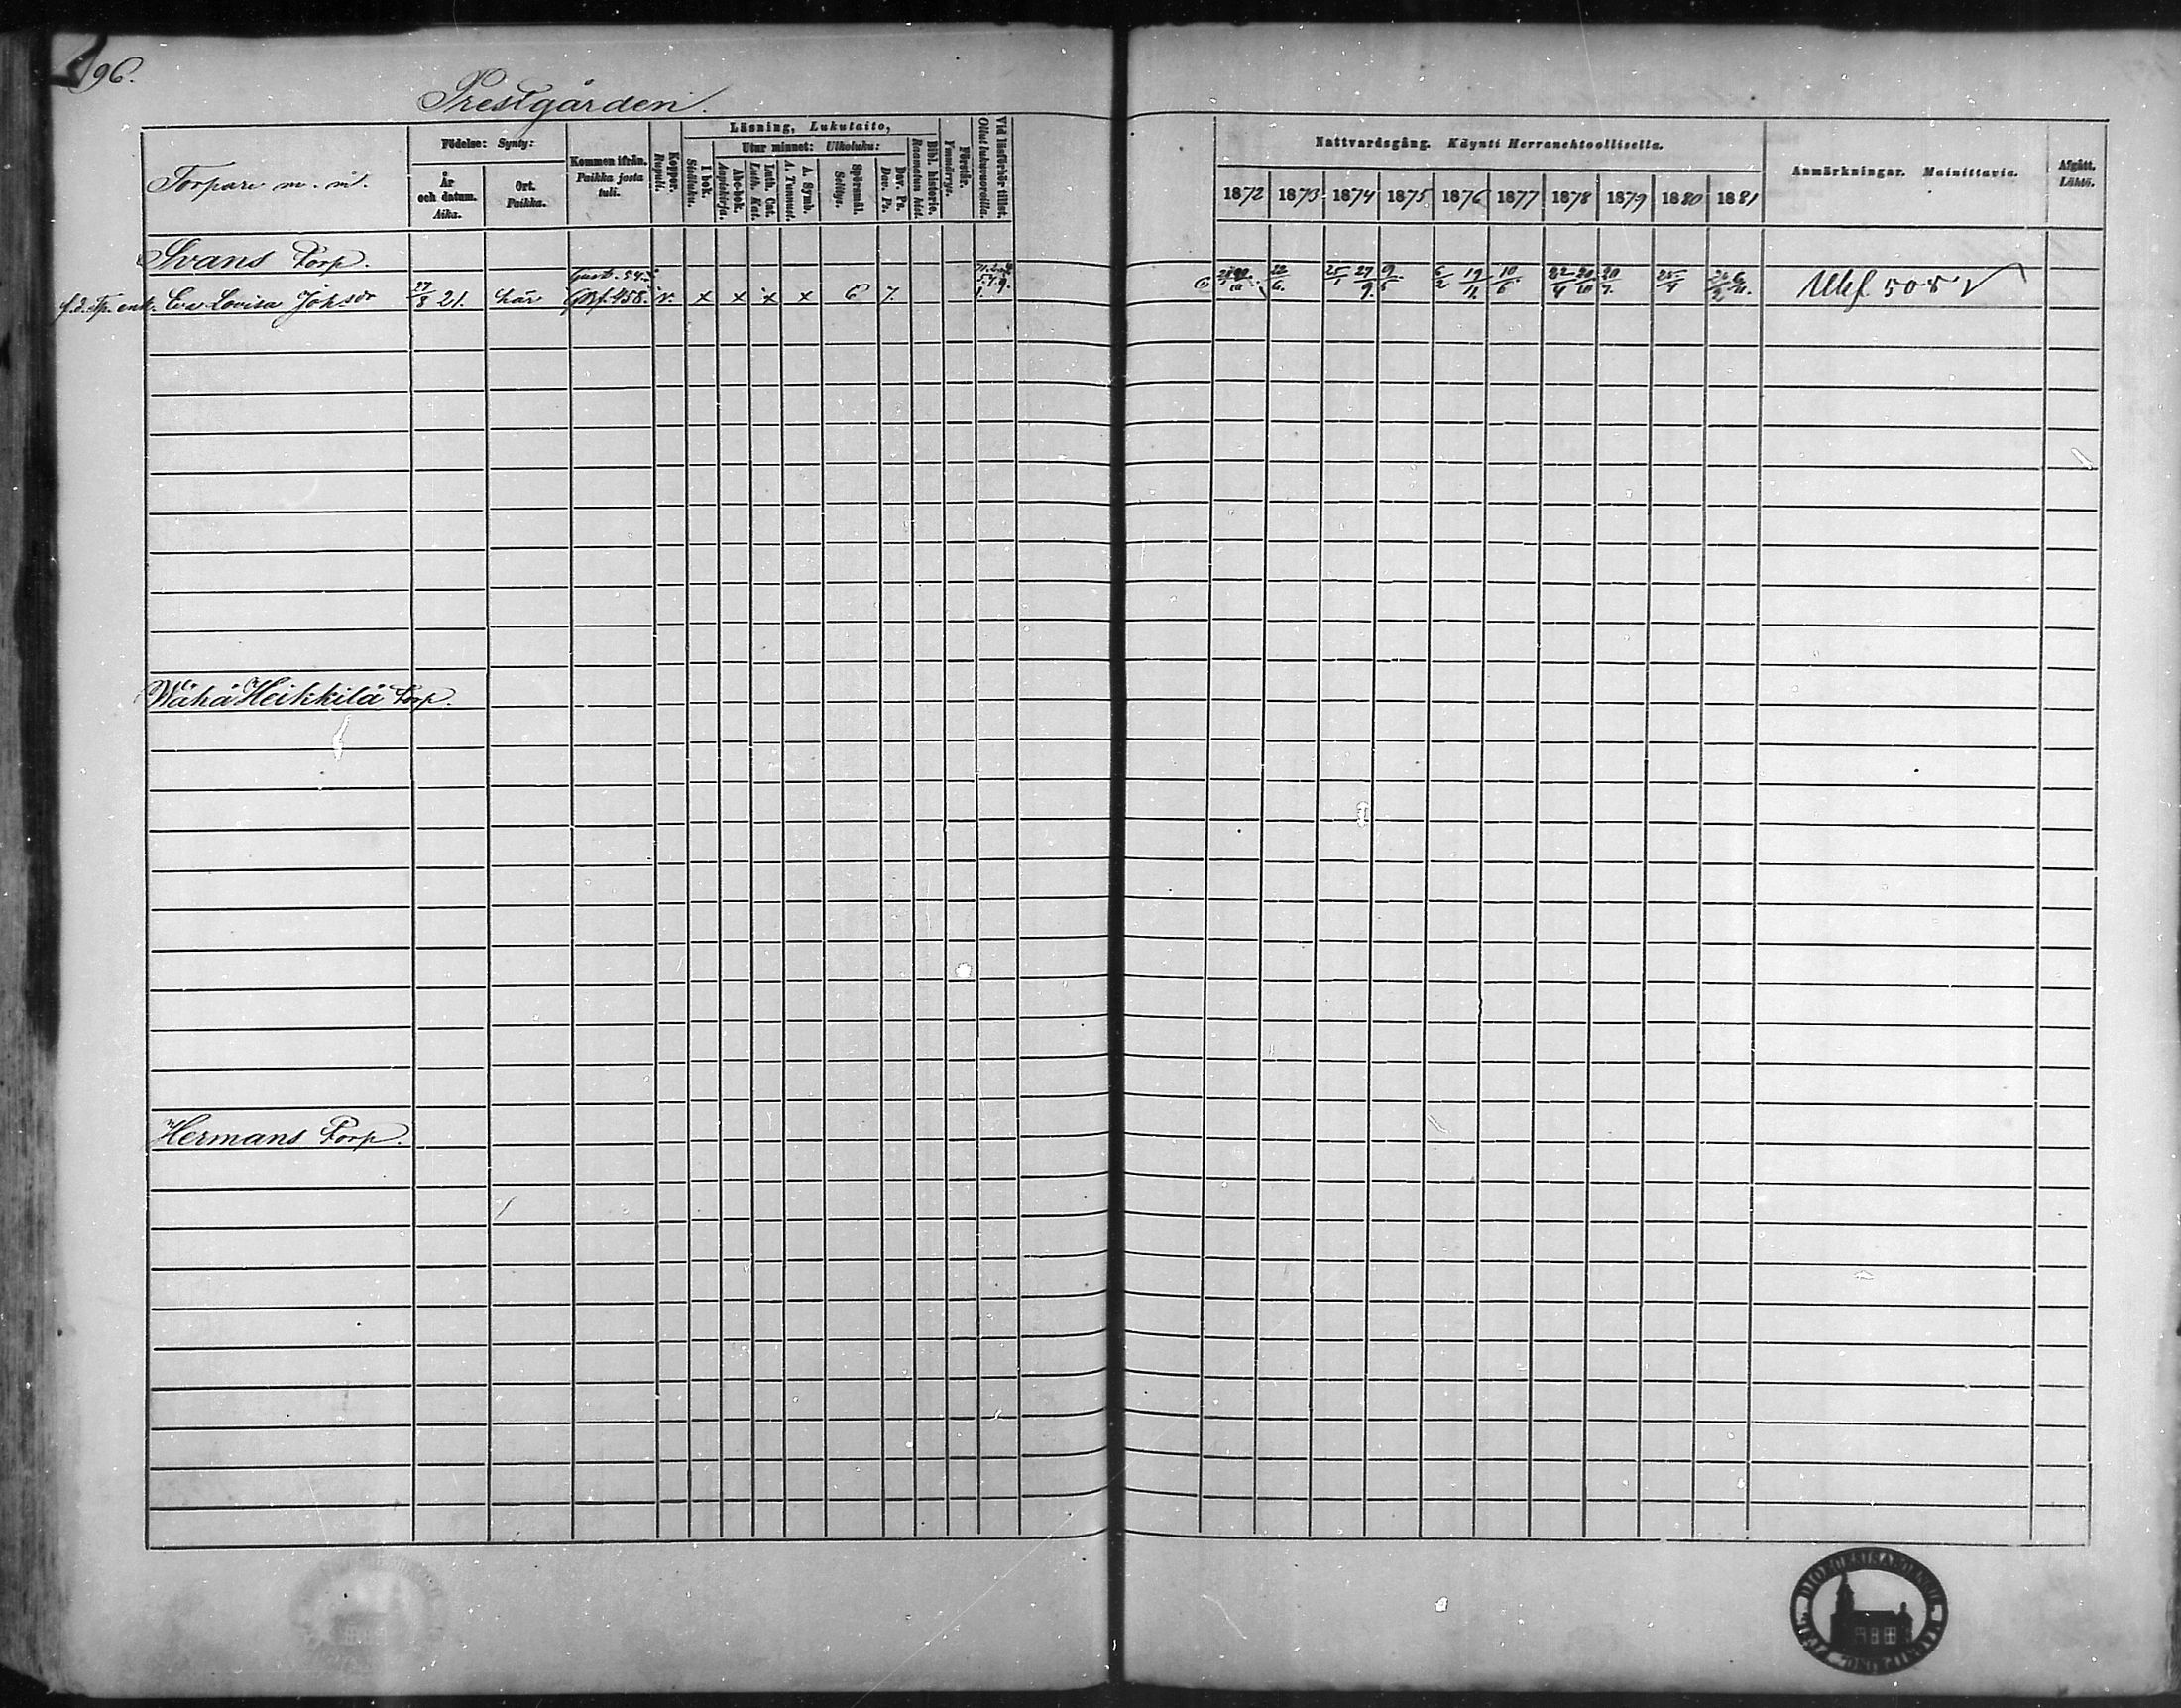 96.
Prestgården.
Torpare m. m.
Födelse: Synty:
År och datum. Aika.
Ort. Paikka.
Kommen ifrån. Paikka josta tuli.
Koppor. Rupuli.
Läsning, Lukutaito,
I bok. Sisäluku.
Utur minnet: Ulkoluku:
Abc-bok. Aapiskirja.
Luth. Cat. Luth. Kat.
A. Symb. A. Tunnust.
Spörsmål. Selitys.
Dav. Ps. Dav. Ps.
Bibl. historie. Raamatun hist.
Förstår. Ymmärrys.
Vid läsförhör tillst. Ollut lukuvuoroilla.
Nattvardsgång. Käynti Herranehtoollisella.
1872 1873 1874 1875 1876 1877 1878 1879 1880 1881
Anmärkningar. Mainittavia.
Afgått. Lähtö.
Svans Torp.
f.d. Tp. enk. Eva Lovisa Johsdr 27/8 21. här 458. v. x x x x 6 7. 22/6. 25/1 27/9. 9/5 6/2 19/11. 10/6 22/4 20/10 20/7. 25/4 508 V
Wähä Heikkilä Torp.
Hermans Torp.